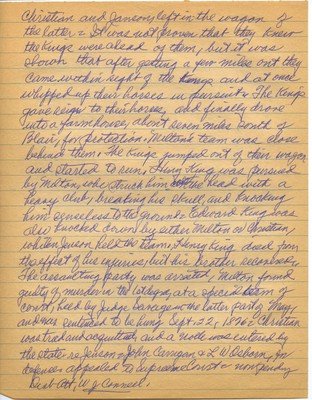 Christian and Jenson, left in the wagon of
the latter = It was not proven that they knew
the kings were ahead of them, but it was
shown that after getting a few miles out they
came within sight of the Kings and at once
whipped up their horses in pursuit & The Kings
gave reign to their horses, and finally drove
into a farmhouse, about seven miles South of
Blair, for protection. Milton's team was close
behind them & The Kings jumped out of their wagon
and started to run, Henry King was pursued
by Milton, who struck him the head with a
heavy club, breaking his skull, and knocking
him senseless to the ground = Edward King was
also knocked down by either Milton or Christian,
while Jenson held the team, Henry King died from
the effect of his injuries, but his brother recovered =
The assaulting party was arrested, Milton found
guilty of murder in the 1st degree, at a special term of
court, held by Judge Savage in the latter part May,
and was sentenced to be hung Sept - 22, 1876 & Christian
was tried and acquitted, and a nolle was entered by
the state re Jenson = John Carrigan & L W Osborn, for
defense = appealed to Supreme Court = now pending
Dist Att, W J Connell.